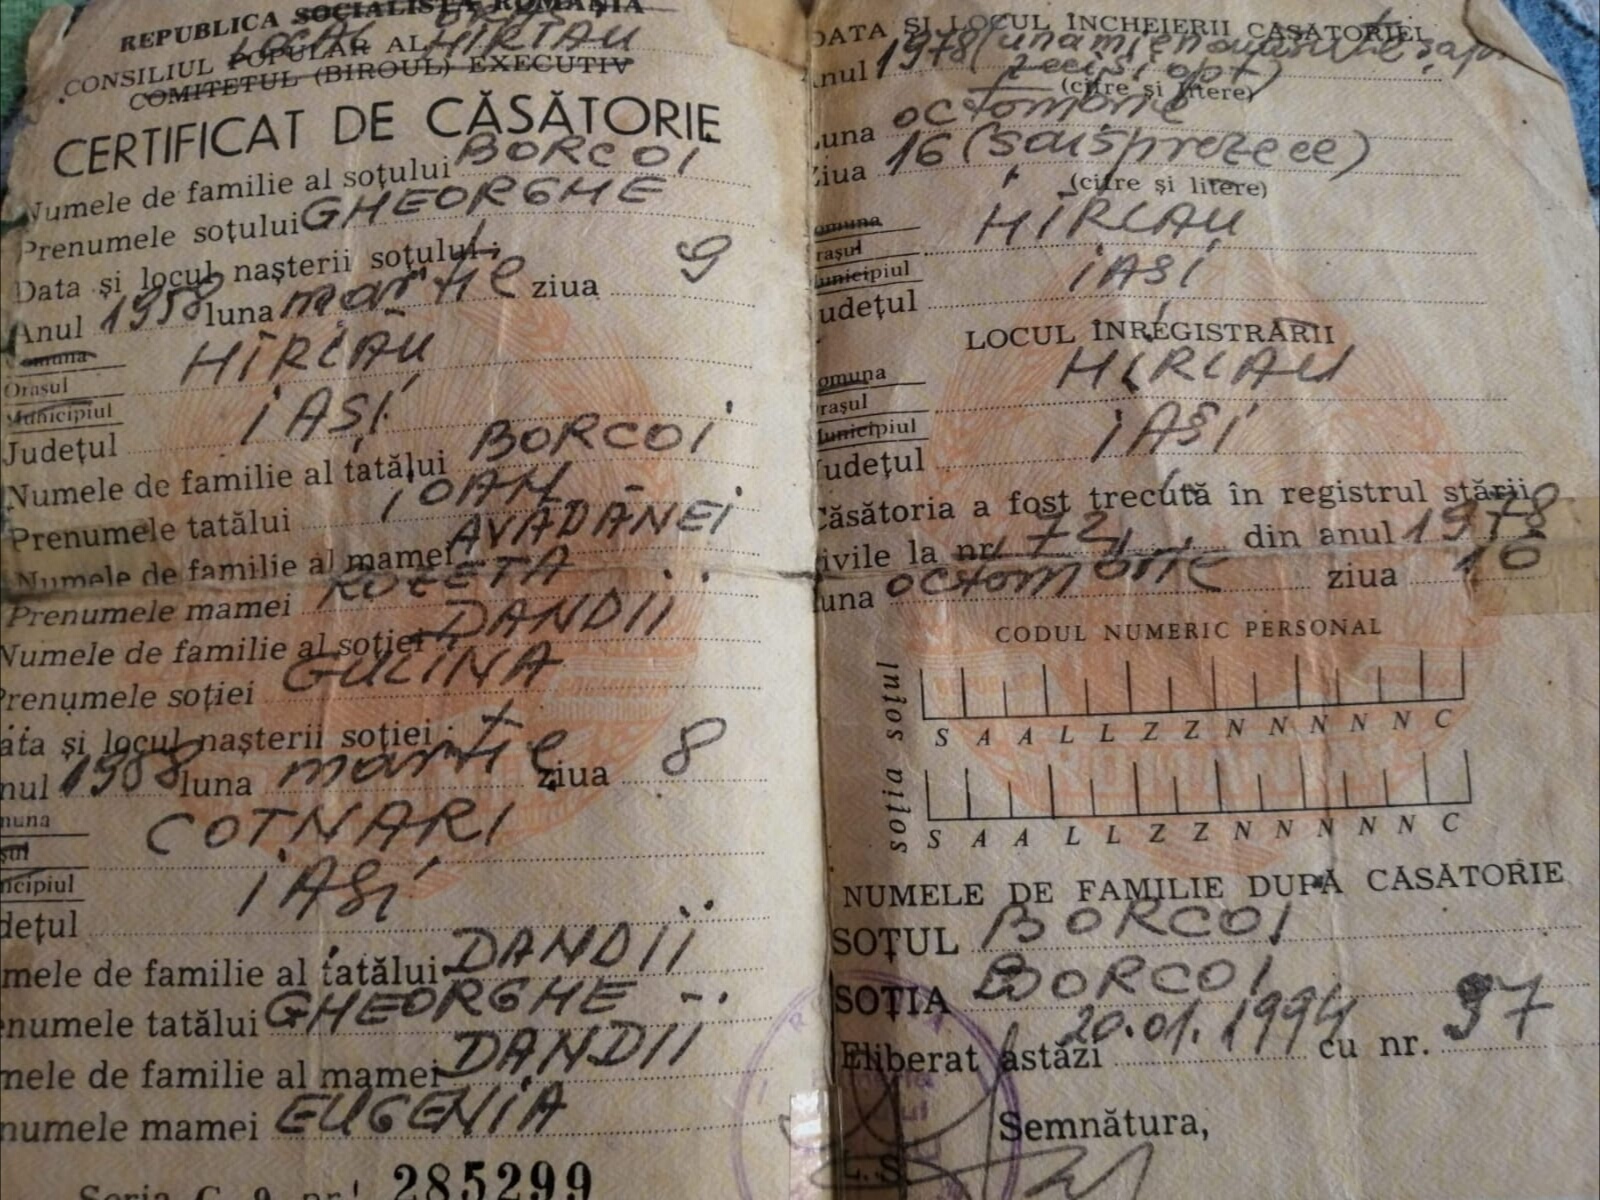 REPUBLICA SOCIALISTĂ ROMÂNIA
CONSILIUL POPULAR AL HÎRLĂU
LOCAL ORAȘ
COMITETUL (BIROUL) EXECUTIV
CERTIFICAT DE CĂSĂTORIE
Numele de familie al soțului BORCOI
Prenumele soțului GHEORGHE
Data și locul nașterii soțului:
Anul 1958 luna martie ziua 9
Comuna
Orașul HÎRLĂU
Municipiul
Județul IAȘI
Numele de familie al tatălui BORCOI
Prenumele tatălui IOAN
Numele de familie al mamei AVĂDĂNEI
Prenumele mamei ROZETA
Numele de familie al soției DANDII
Prenumele soției GULINA
ata și locul nașterii soției:
nul 1958 luna martie ziua 8
muna COTNARI
șul
nicipiul
dețul IAȘI
mele de familie al tatălui DANDII
enumele tatălui GHEORGHE
mele de familie al mamei DANDII
numele mamei EUGENIA
Seria C. 9 nr. 285299
DATA ȘI LOCUL ÎNCHEIERII CĂSĂTORIEI
Anul 1978 (unamienouăsuteșapte
zeciși opt)
(cifre și litere)
Luna octombrie
Ziua 16 (șaisprezece)
(cifre și litere)
omuna
rașul HÎRLĂU
unicipiul
udețul IAȘI
LOCUL ÎNREGISTRĂRII
omuna
rașul HÎRLĂU
unicipiul
udețul IAȘI
Căsătoria a fost trecută în registrul stării
civile la nr. 72 din anul 1978
luna octombrie ziua 10
CODUL NUMERIC PERSONAL
soțul
S A A L L Z Z N N N N N C
soția
S A A L L Z Z N N N N N C
NUMELE DE FAMILIE DUPĂ CĂSĂTORIE
SOȚUL BORCOI
SOȚIA BORCOI
Eliberat astăzi 20.01.1994 cu nr. 97
Semnătura,
L.S.